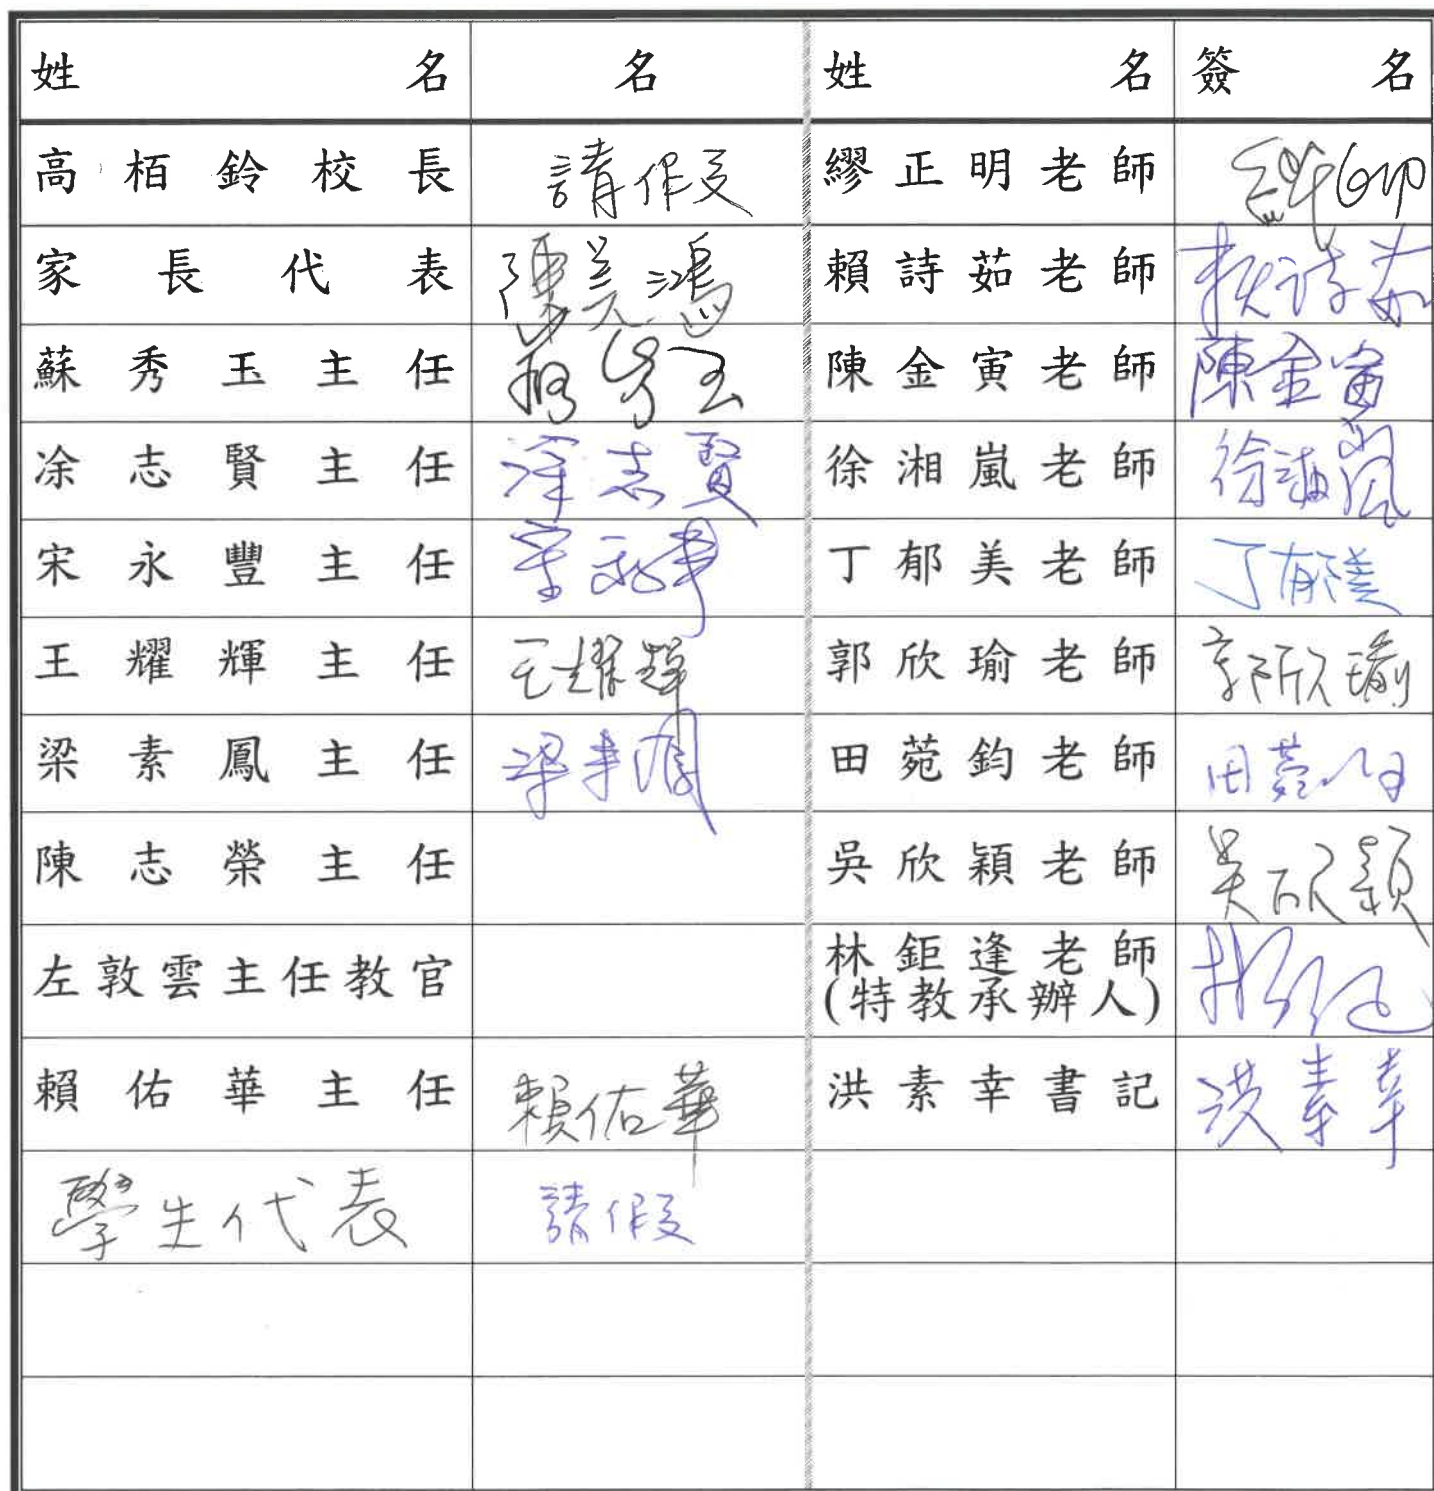 姓名 名 姓名 簽名
高栢鈴校長 請假 繆正明老師
家長代表 賴詩茹老師 賴詩茹
蘇秀玉主任 蘇秀玉 陳金寅老師 陳金寅
凃志賢主任 凃志賢 徐湘嵐老師 徐湘嵐
宋永豐主任 宋永豐 丁郁美老師 丁郁美
王耀輝主任 王耀輝 郭欣瑜老師 郭欣瑜
梁素鳳主任 梁素鳳 田菀鈞老師 田菀鈞
陳志榮主任 吳欣穎老師 吳欣穎
左敦雲主任教官 林鉅逢老師
(特教承辦人)
賴佑華主任 賴佑華 洪素幸書記 洪素幸
學生代表 請假